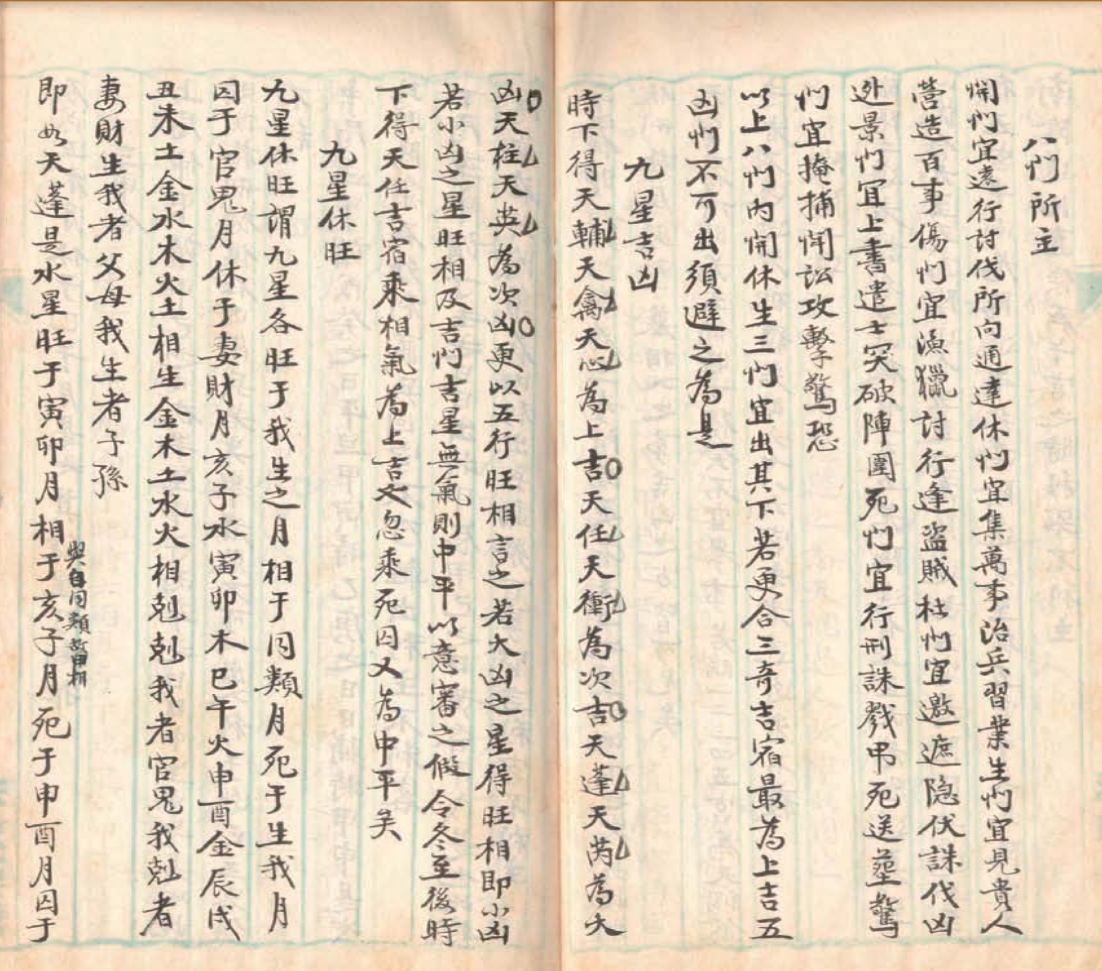 八門所主
開門宜遠行討伐所向通達休門宜集萬事治兵習業生門宜見貴人
營造百事傷門宜漁獵討行逢盜賊杜門宜邀遮隐伏誅伐凶
迯景門宜上書遣士突破陣圍死門宜行刑誅戮弔死送塟驚
門宜掩捕鬥訟攻擊驚恐
以上八門内開休生三門宜出其下若更合三奇吉宿最為上吉五
凶門不可出須避之為是
九星吉凶
時下得天輔天禽天心為上吉天任天衝為次吉天蓬天芮為大
凶天柱天英為次凶更以五行旺相言之若大凶之星得旺相即小凶
若小凶之星旺相及吉門吉星無氣則中平以意審之假令冬至後時
下得天任吉宿乘相氣為上吉之忽乘死囚又為中平矣
九星休旺
九星休旺謂九星各旺于我生之月相于同類月死于生我月
囚于官鬼月休于妻財月亥子水寅卯木巳午火申酉金辰戌
丑未土金水木火土相生金木土水火相剋剋我者官鬼我剋者
妻財生我者父母我生者子孫
即如天蓬是水星旺于寅卯月相于亥子月死于申酉月囚于
與自同類故曰相